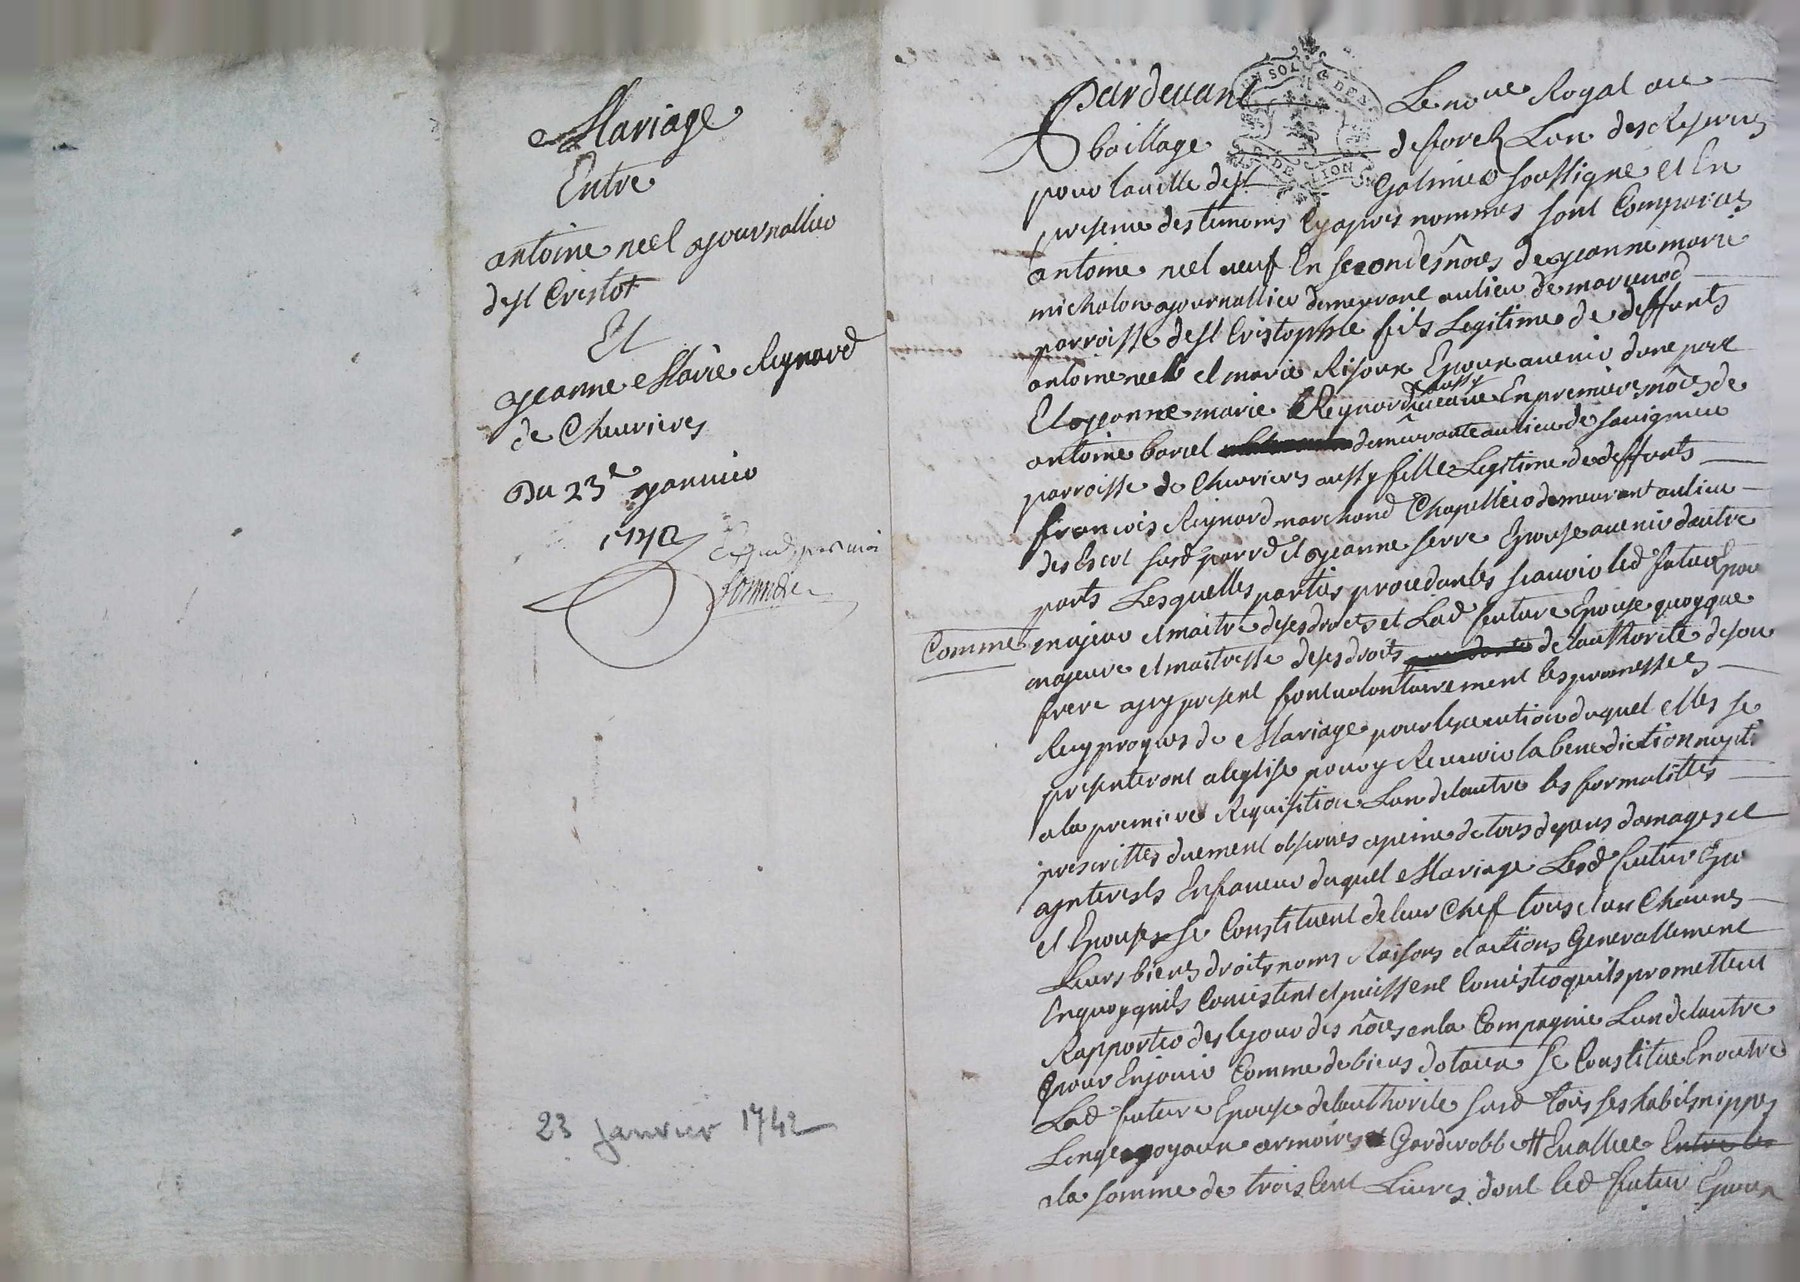 Mariage
Entre
antoine neel journallier
de st Cristot
Et
jeanne Marie Reynard
de Cheurieres
Du 23e januier
1742
23 janvier 1742
Pardeuant Le nore Royal au
bailliage de forest Lun des Reserués
pour la uille de st Galmier soussigné et En
presence des temoins Cy apres nommés sont Comparus
antoine neel ueuf En secondes nôces de jeanne marie
michalon journallier demeurant au lieu de
parroisse de st Cristophle fils Legitime de deffunts
antoine neel et marie Epoux auenir dune part
Et jeanne marie Reynard aussy ueuue En premieres nôces de
antoine demeurante au lieu de sauigneu
parroisse de Cheurieres aussy fille Legitime de deffunts
francois Reynard marchand Chapellier demeurant au lieu
susd parrd et jeanne serre Epouse auenir dautre
part Lesquelles parties procedantes scauoir led futur Epou
majeur et maitre de ses droits et Lad future Epouse quoyque
Comme majeure et maitresse de ses droits de lauthorité de son
frere icy present font uolontairement les promesses
Reyproques de Mariage pour lexecution duquel elles se
presenteront a leglise pour y Receuoir la benediction nupti
a la premiere Requisition Lun de lautre les formalittés
prescrittes duement obseruées a peine de tous depens domages et
jnterests En faueur duquel Mariage Lesd futur Epo
et Epouse se Constituent de leur Chef tous et un Chacuns
Leurs biens droits noms Raisons et actions Generallement
En quoy quils Concistent et puissent Concister quils promettent
Rapporter des le jour des nôces en la Compagnie Lun de lautre
pour En jouir Comme de biens dotaux se Constitue En outre
Lad future Epouse de lauthorité susd tous ses habits nippes
Linge joyaux armoires Garderobbe Eualluée
a la somme de trois Cent Liures dont led futur Epoux